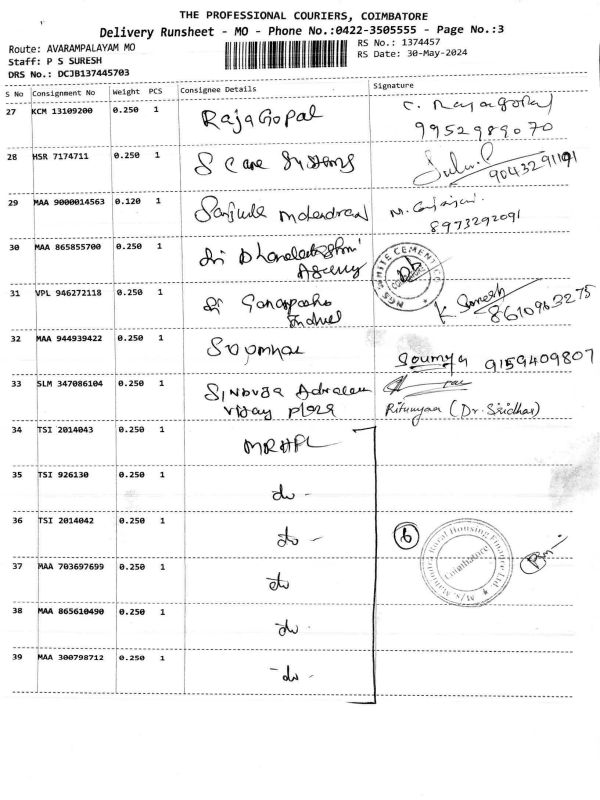 THE PROFESSIONAL COURIERS, COIMBATORE
Delivery Runsheet - MO - Phone No.:0422-3505555 - Page No.:3
Route: AVARAMPALAYAM MO
RS No.: 1374457
Staff: P S SURESH
RS Date: 30-May-2024
DRS No.: DCJB137445703
S No Consignment No Weight PCS Consignee Details Signature
27 KCM 13109200 0.250 1 RajaGopal C. Rajagopal
9952989070
28 HSR 7174711 0.250 1 S Care Systems
9043291191
29 MAA 9000014563 0.120 1
8973292091
30 MAA 865855700 0.250 1 Sri Dhanalakshmi
Agency
MGS WHITE CEMENT
31 VPL 946272118 0.250 1 Sri K Suresh
8610963275
32 MAA 944939422 0.250 1 Soumya 9159409807
33 SLM 347086104 0.250 1
Vijay Plaza Ritunyaa (Dr. Sridhar)
34 TSI 2014043 0.250 1 MRHFL
35 TSI 926130 0.250 1 do -
36 TSI 2014042 0.250 1 do - 6
M/s. Mahindra Rural Housing Finance Ltd
Coimbatore
37 MAA 703697699 0.250 1 do
38 MAA 865610490 0.250 1 do -
39 MAA 300798712 0.250 1 - do -